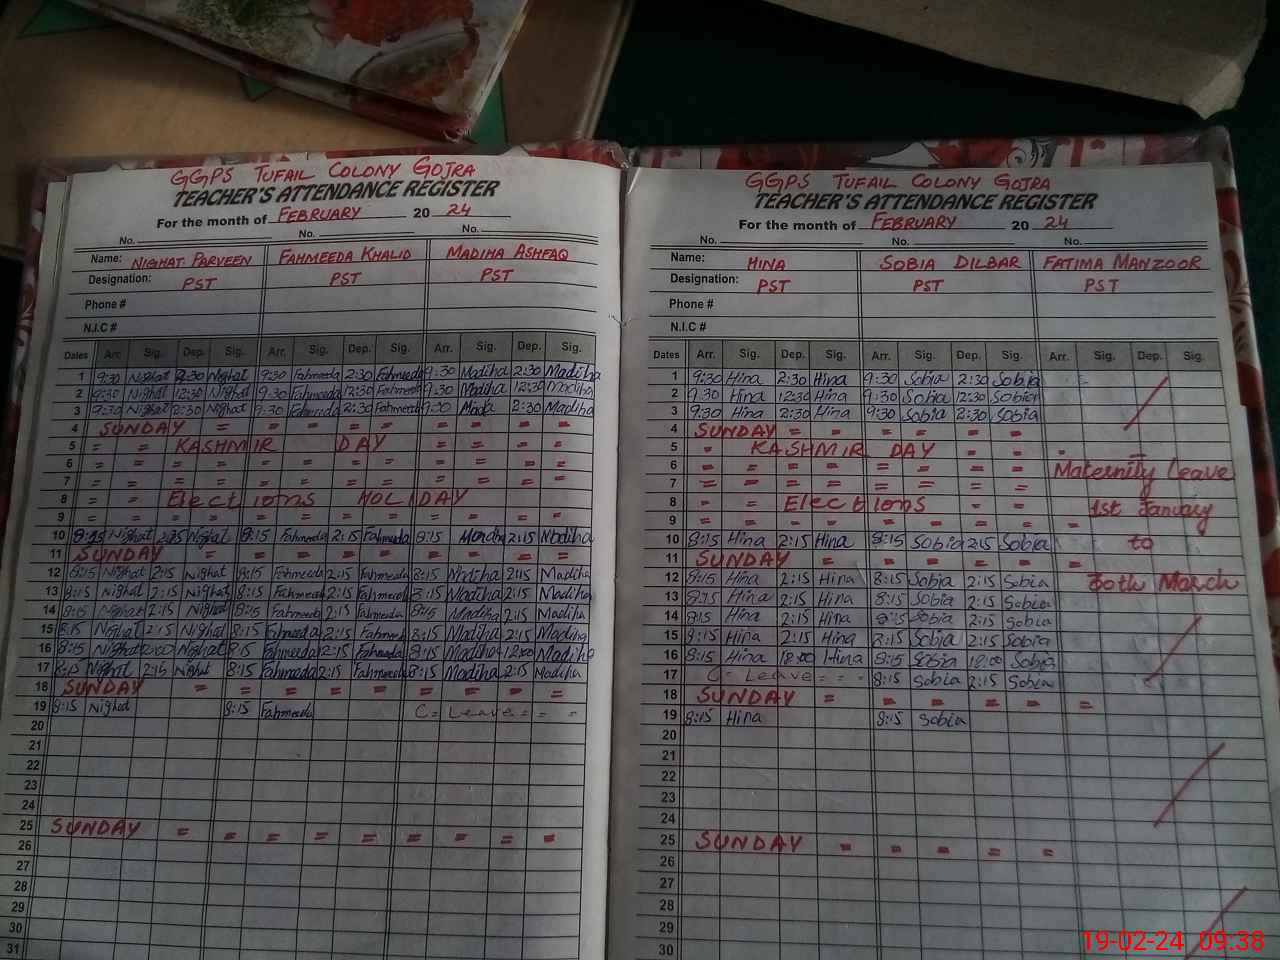 GGPS TUFAIL COLONY GOJRA
TEACHER'S ATTENDANCE REGISTER
For the month of FEBRUARY 20 24
No. No. No.
Name: NIGHAT PARVEEN FAHMEEDA KHALID MADIHA ASHFAQ
Designation: PST PST PST
Phone #
N.I.C #
Dates Arr. Sig. Dep. Sig. Arr. Sig. Dep. Sig. Arr. Sig. Dep. Sig.
1 9:30 Nighat 2:30 Nighat 9:30 Fahmeeda 2:30 Fahmeeda 9:30 Madiha 2:30 Madiha
2 9:30 Nighat 12:30 Nighat 9:30 Fahmeeda 12:30 Fahmeeda 9:30 Madiha 12:30 Madiha
3 9:30 Nighat 2:30 Nighat 9:30 Fahmeeda 2:30 Fahmeeda 9:30 2:30 Madiha
4 SUNDAY = = = = = = = =
5 = = KASHMIR DAY = = = =
6 = = = = = = = = = = = =
7 = = = = = = = = = = = =
8 = = Elections HOLIDAY
9 = = = = = = = = = = = =
10 8:15 Nighat 2:15 Nighat 8:15 Fahmeeda 2:15 Fahmeeda 8:15 Madiha 2:15 Madiha
11 SUNDAY = = = = = = = = =
12 8:15 Nighat 2:15 Nighat 8:15 Fahmeeda 2:15 Fahmeeda 8:15 Madiha 2:15 Madiha
13 8:15 Nighat 2:15 Nighat 8:15 Fahmeeda 2:15 Fahmeeda 8:15 Madiha 2:15 Madiha
14 8:15 Nighat 2:15 Nighat 8:15 Fahmeeda 2:15 Fahmeeda 8:15 Madiha 2:15 Madiha
15 8:15 Nighat 2:15 Nighat 8:15 Fahmeeda 2:15 Fahmeeda 8:15 Madiha 2:15 Madiha
16 8:15 Nighat Nighat 8:15 Fahmeeda Fahmeeda 8:15 Madiha 12:00 Madiha
17 8:15 Nighat 2:15 Nighat 8:15 Fahmeeda 2:15 Fahmeeda 8:15 Madiha 2:15 Madiha
18 SUNDAY = = = = = = = = =
19 8:15 Nighat 8:15 Fahmeeda C = Leave = = =
20
21
22
23
24
25 SUNDAY = = = = = = = = =
26
27
28
29
30
31
GGPS TUFAIL COLONY GOJRA
TEACHER'S ATTENDANCE REGISTER
For the month of FEBRUARY 20 24
No. No. No.
Name: HINA SOBIA DILBAR FATIMA MANZOOR
Designation: PST PST PST
Phone #
N.I.C #
Dates Arr. Sig. Dep. Sig. Arr. Sig. Dep. Sig. Arr. Sig. Dep. Sig.
1 9:30 Hina 2:30 Hina 9:30 Sobia 2:30 Sobia
2 9:30 Hina 12:30 Hina 9:30 Sobia 12:30 Sobia
3 9:30 Hina 2:30 Hina 9:30 Sobia 2:30 Sobia
4 SUNDAY = = = = = =
5 = KASHMIR DAY = = = =
6 = = = = = = = = Maternity Leave
7 = = = = = = = =
8 = = Elections = = = 1st January
9 = = = = = = = = =
10 8:15 Hina 2:15 Hina 8:15 Sobia 2:15 Sobia to
11 SUNDAY = = = = = =
12 8:15 Hina 2:15 Hina 8:15 Sobia 2:15 Sobia 30th March
13 8:15 Hina 2:15 Hina 8:15 Sobia 2:15 Sobia
14 8:15 Hina 2:15 Hina 8:15 Sobia 2:15 Sobia
15 8:15 Hina 2:15 Hina 8:15 Sobia 2:15 Sobia
16 8:15 Hina 12:00 Hina 8:15 Sobia 12:00 Sobia
17 C - Leave = = - 8:15 Sobia 2:15 Sobia
18 SUNDAY = = = = = =
19 8:15 Hina 8:15 Sobia
20
21
22
23
24
25 SUNDAY = = = = =
26
27
28
29
30
19-02-24 09:38